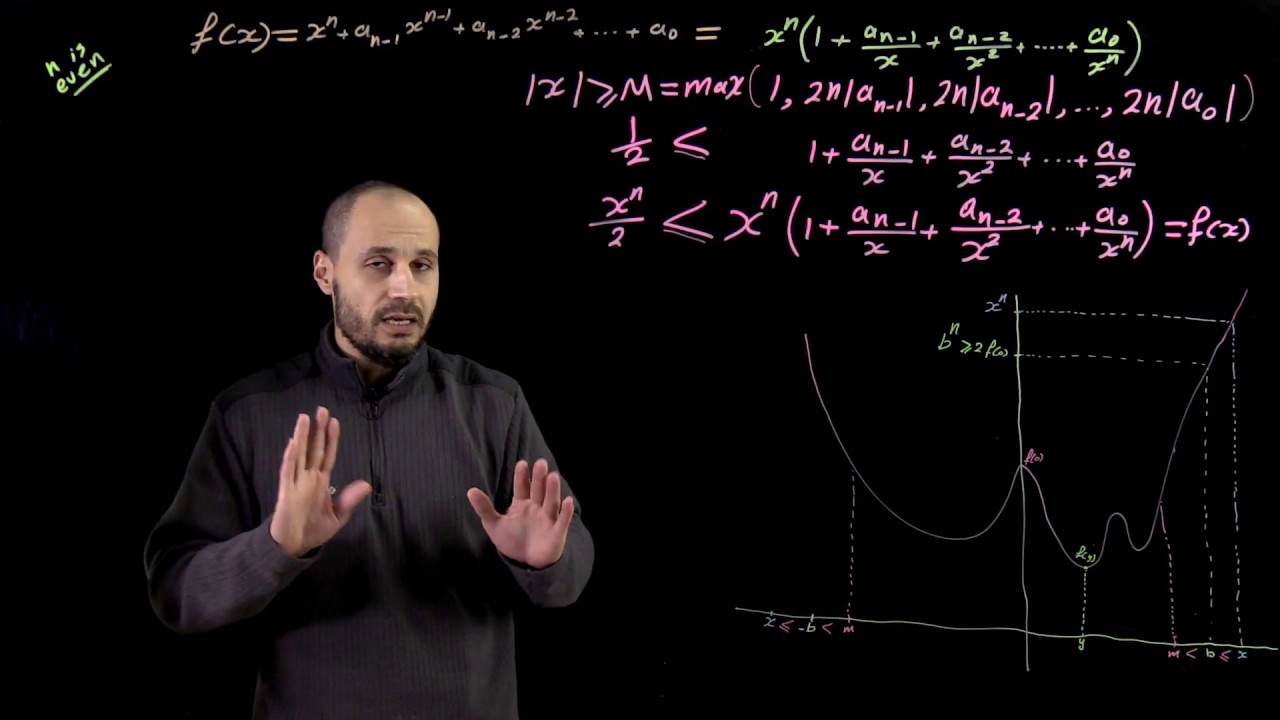 n is
even
f(x) = xⁿ + aₙ₋₁xⁿ⁻¹ + aₙ₋₂xⁿ⁻² + ····· + a₀ = xⁿ(1 + aₙ₋₁/x + aₙ₋₂/x² + ····· + a₀/xⁿ)
|x| ⩾ M = max(1, 2n|aₙ₋₁|, 2n|aₙ₋₂|, ..., 2n|a₀|)
1/2 ≤ 1 + aₙ₋₁/x + aₙ₋₂/x² + ··· + a₀/xⁿ
xⁿ/2 ≤ xⁿ(1 + aₙ₋₁/x + aₙ₋₂/x² + ··· + a₀/xⁿ) = f(x)
xⁿ
bⁿ ⩾ 2f(0)
f(0)
f(y)
x ⩽ -b < m
y
m < b ⩽ x